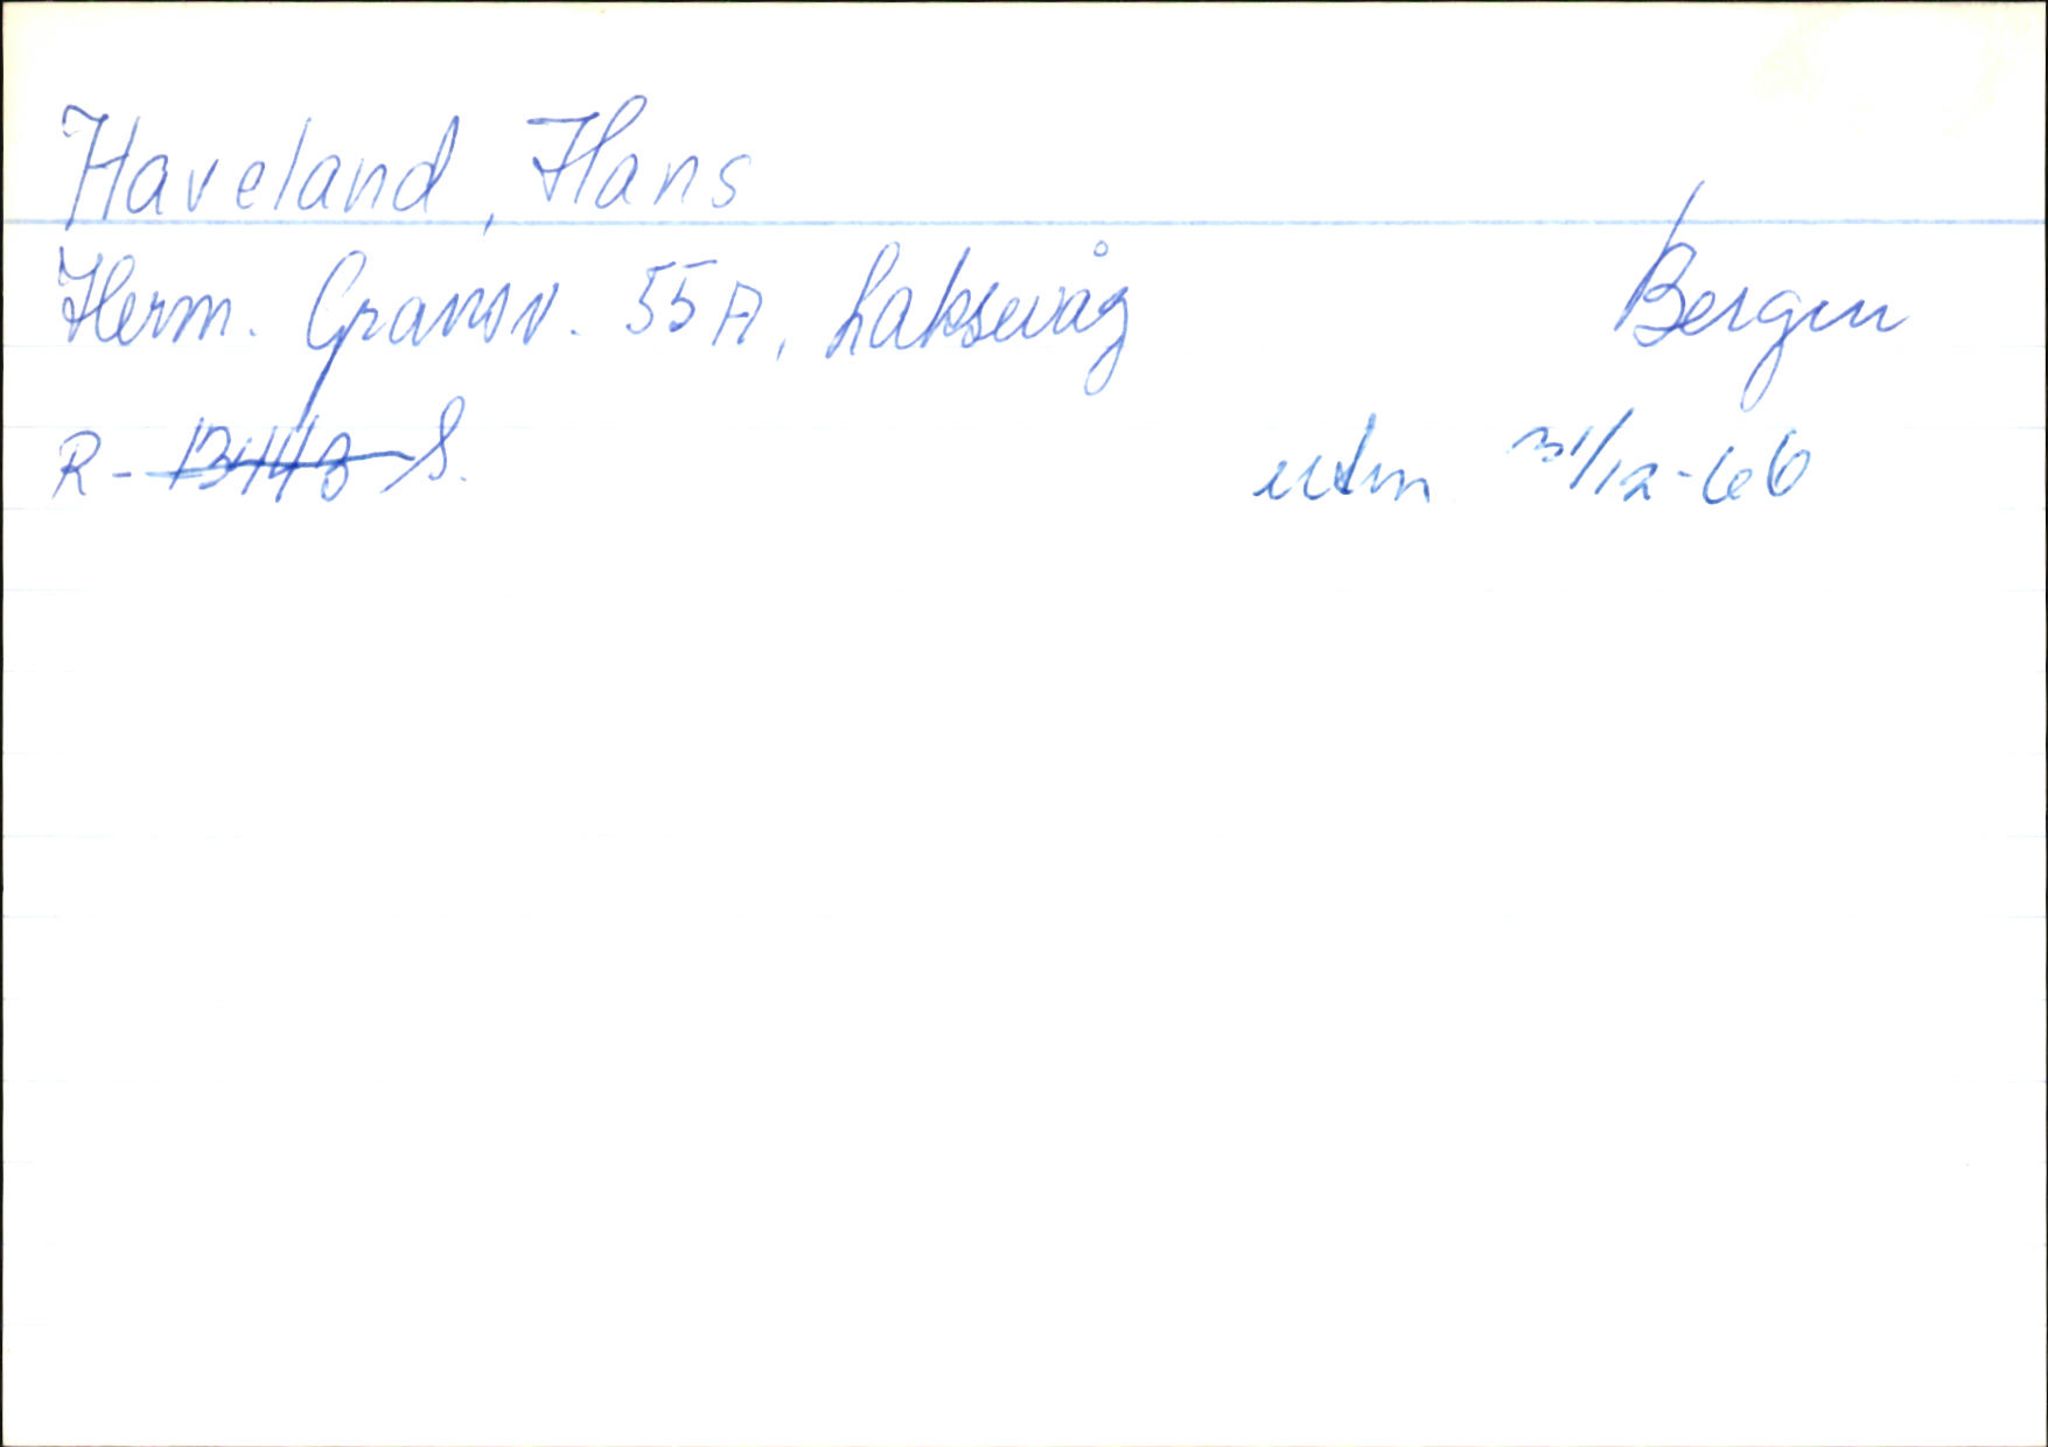 Haveland, Hans
Herm. Gransv. 55A, Laksevåg Bergen
R- S. utm 31/12-66